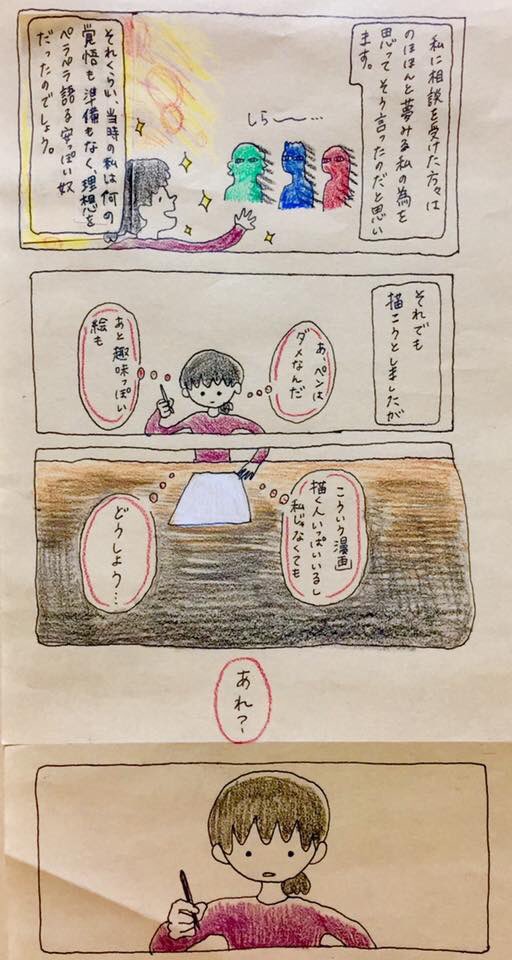 私に相談を受けた方々は
のほほんと夢みる私の為を
思って そう言ったのだと思い
ます。
しら〜…
それくらい、当時の私は何の
覚悟も準備もなく、理想を
ペラペラ語る安っぽい奴
だったのでしょう。
それでも
描こうとしましたが
あ、ペンは
ダメなんだ
あと 趣味っぽい
絵も
こういう漫画
描く人いっぱいいるし
私じゃなくても
どうしよう…
あれ?